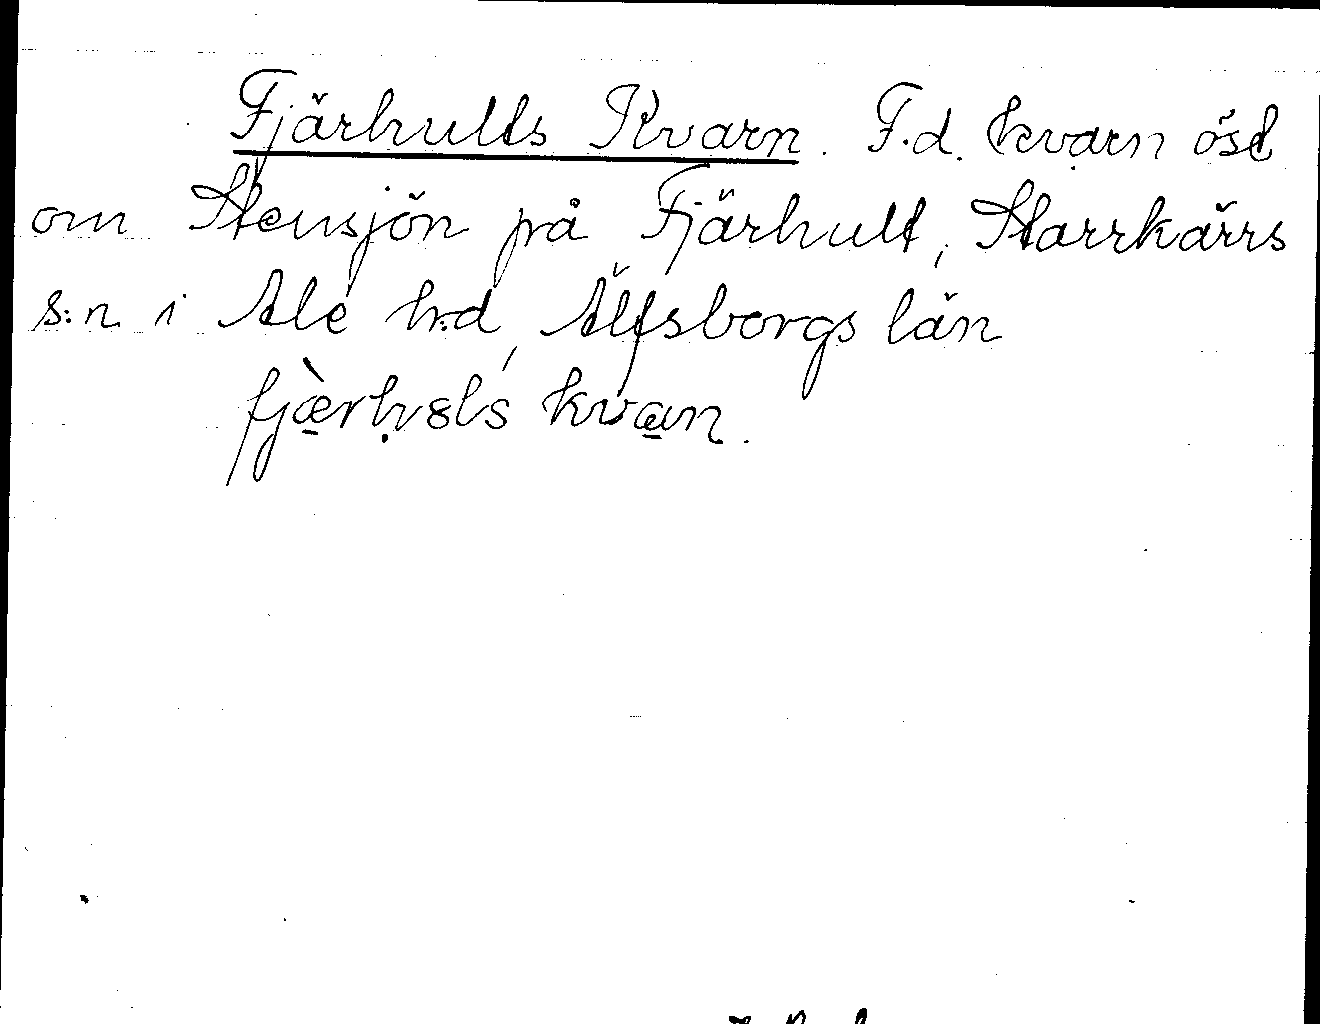 Fjärhults Kvarn. F.d. kvarn öst
om Stensjön på Fjärhult, Starrkärrs
s:n i Ale h:d, Älfsborgs län